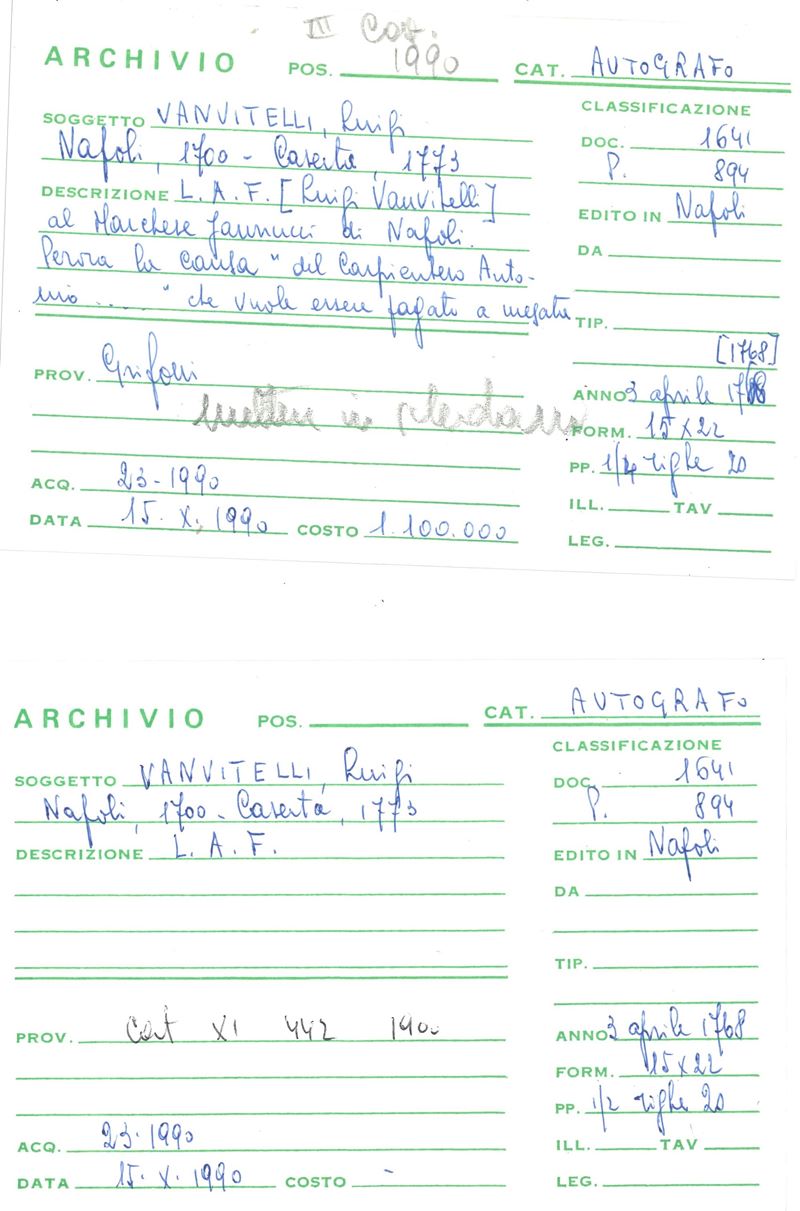 III Cat.
1990
ARCHIVIO POS. CAT. AUTOGRAFO
SOGGETTO VANVITELLI, Luigi
Napoli, 1700 - Caserta, 1773
DESCRIZIONE L. A. F. [Luigi Vanvitelli]
al Marchese Jannucci di Napoli.
Perora la causa " del Carpientero Anto-
nio ..... " che vuole essere pagato a
PROV. Grifoni
mettere in
ACQ. 23-1990
DATA 15. X. 1990 COSTO 1.100.000
CLASSIFICAZIONE
DOC. 1641
P. 894
EDITO IN Napoli
DA
TIP.
[1768]
ANNO 3 aprile
FORM. 15 X 22
PP. righe 20
ILL. TAV
LEG.
ARCHIVIO POS. CAT. AUTOGRAFO
SOGGETTO VANVITELLI, Luigi
Napoli, 1700 - Caserta, 1773
DESCRIZIONE L. A. F.
PROV. Cat XI 442
ACQ. 23-1990
DATA 15. X. 1990 COSTO -
CLASSIFICAZIONE
DOC. 1641
P. 894
EDITO IN Napoli
DA
TIP.
ANNO 3 aprile 1768
FORM. 15 X 22
PP. 1/2 righe 20
ILL. TAV
LEG.